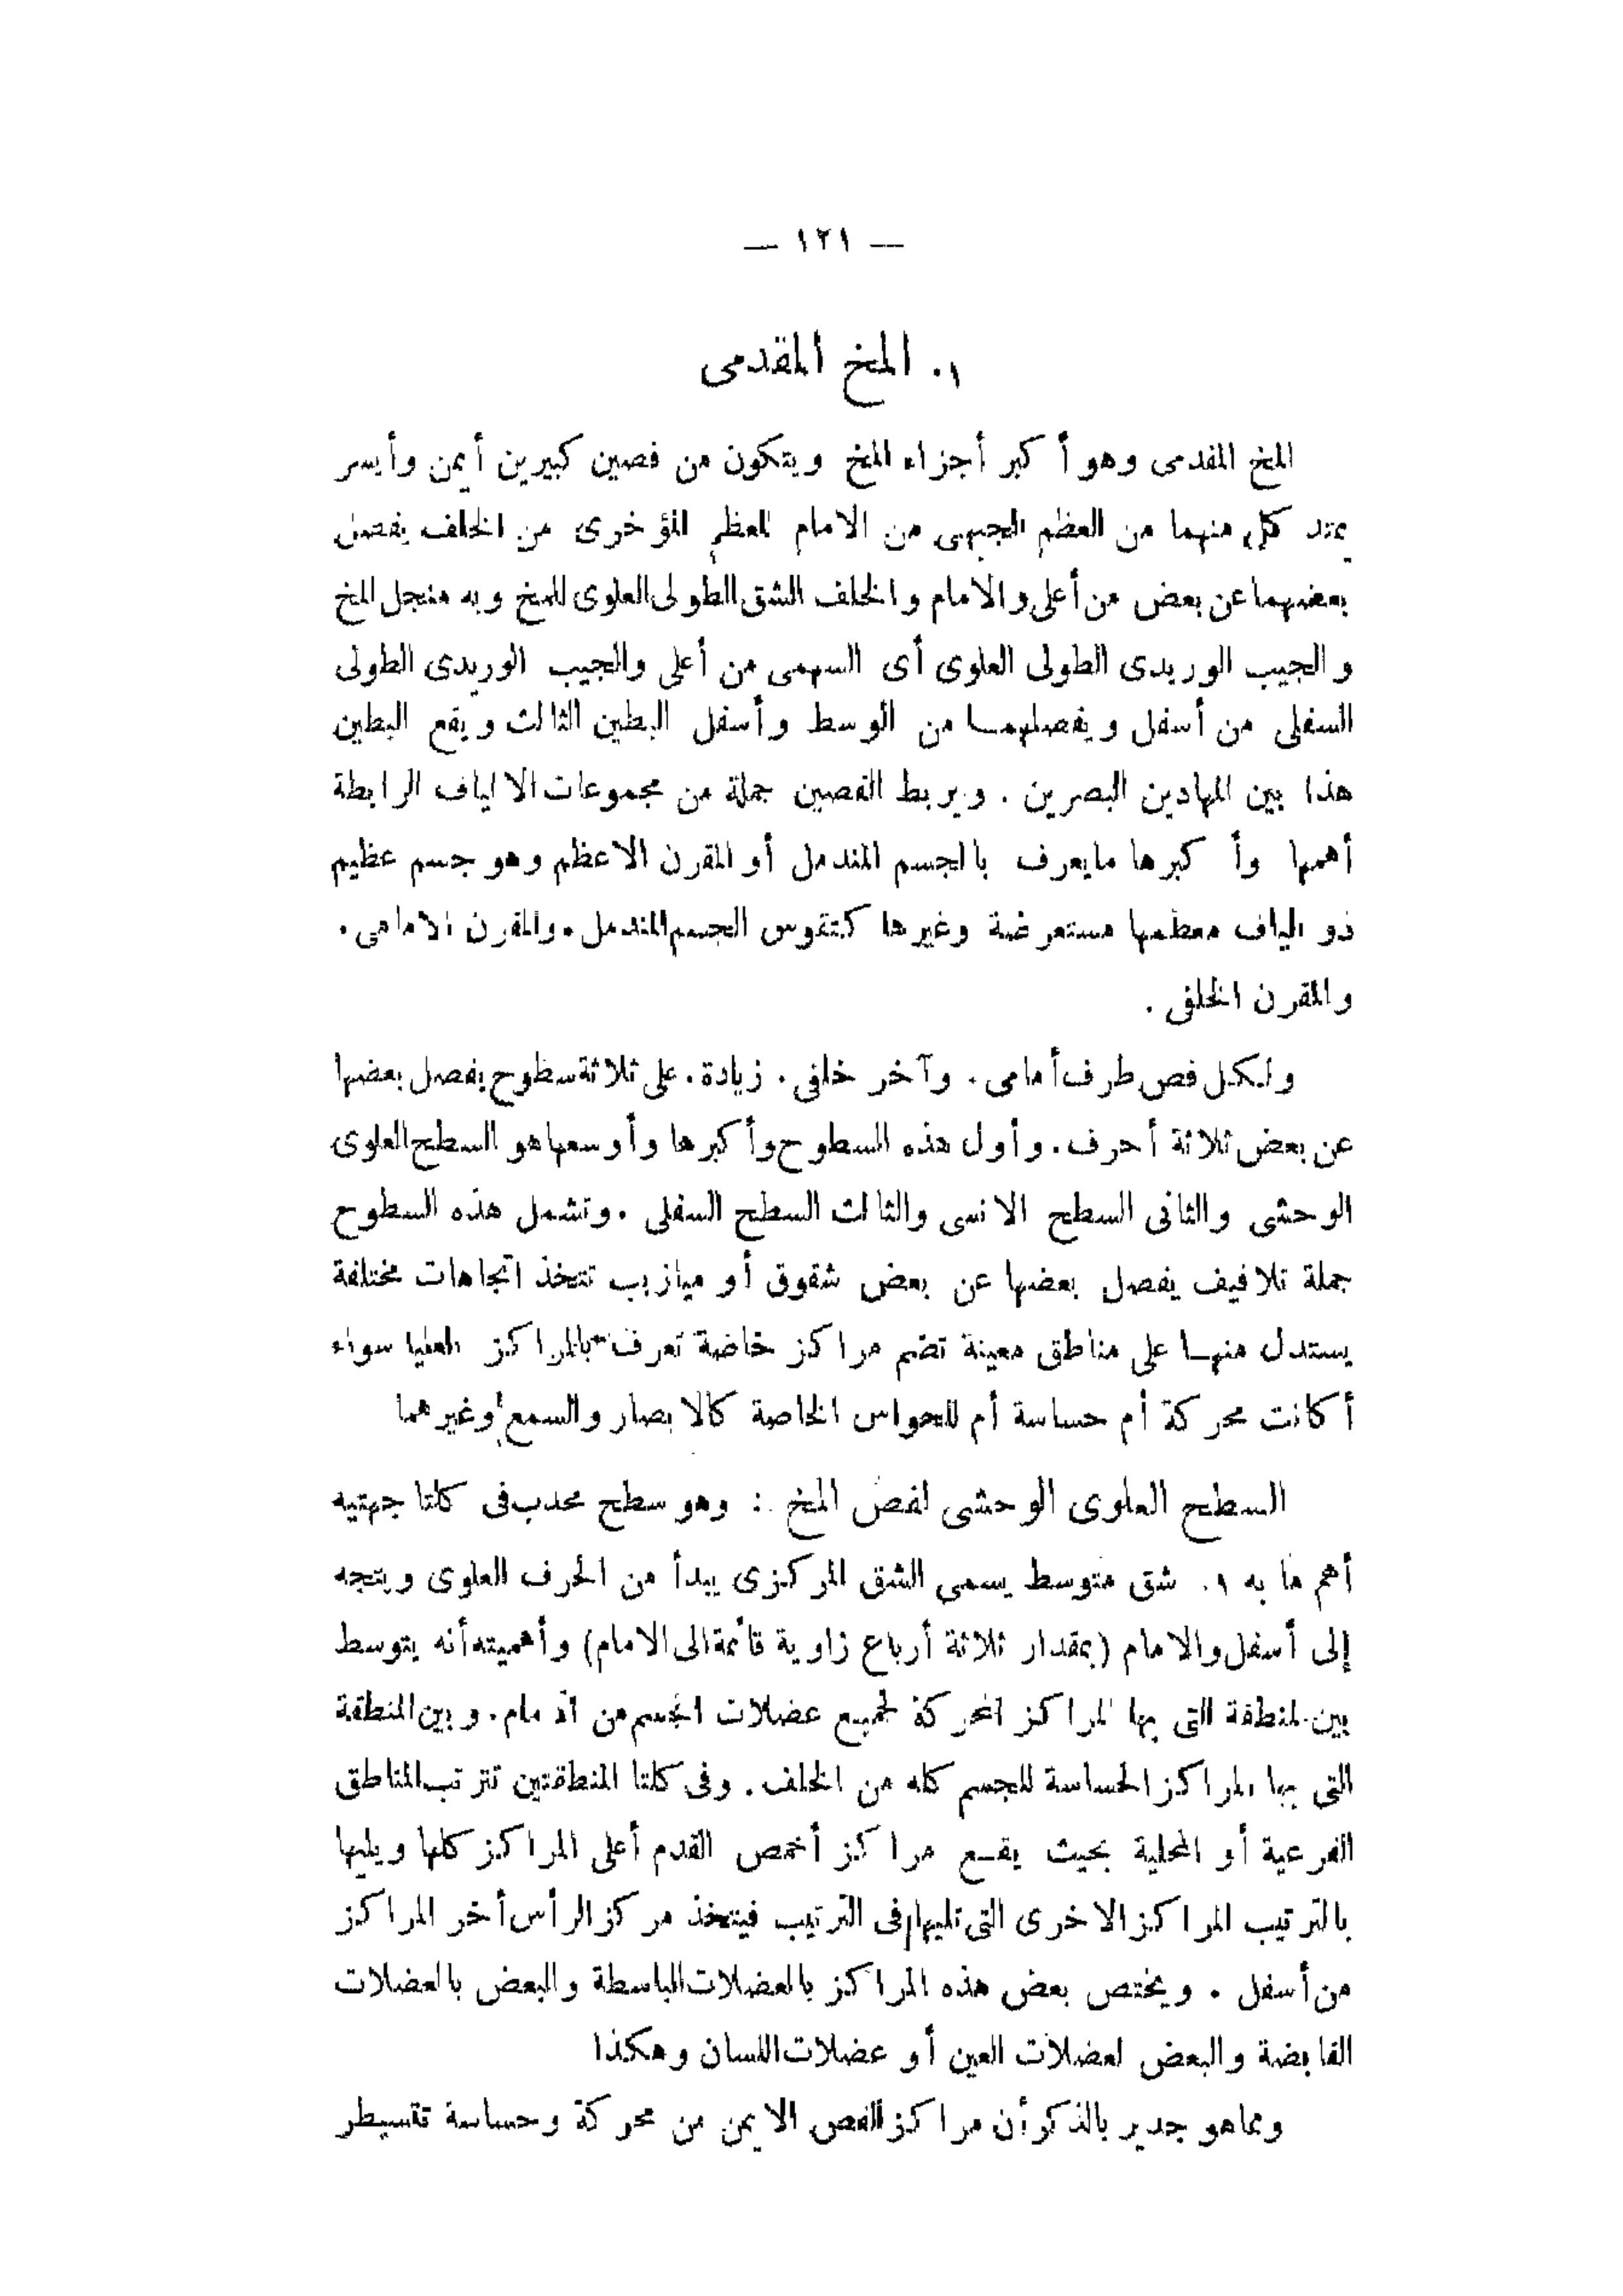 — ١٢١ —
١. المخ المقدمى
المخ المقدمى وهو أكبر أجزاء المخ ويتكون من فصين كبيرين أيمن وأيسر
يمتد كل منهما من العظم الجبهى من الامام للعظم المؤخرى من الخلف يفصل
بعضهما عن بعض من أعلى والامام والخلف الشق الطولى العلوى للمخ وبه منجل المخ
والجيب الوريدى الطولى العلوى أى السهمى من أعلى والجيب الوريدى الطولى
السفلى من أسفل ويفصلهما من الوسط وأسفل البطين الثالث ويقع البطين
هذا بين المهادين البصرين . ويربط الفصين جملة من مجموعات الالياف الرابطة
أهمها وأكبرها مايعرف بالجسم المندمل أو المقرن الاعظم وهو جسم عظيم
ذو الياف معظمها مستعرضة وغيرها كتقوس الجسم المندمل . والمقرن الامامى .
والمقرن الخلفى .
ولكل فص طرف أمامى . وآخر خلفى . زيادة . على ثلاثة سطوح يفصل بعضها
عن بعض ثلاثة أحرف . وأول هذه السطوح وأكبرها وأوسعها هو السطح العلوى
الوحشى والثانى السطح الانسى والثالث السطح السفلى . وتشمل هذه السطوح
جملة تلافيف يفصل بعضها عن بعض شقوق أو ميازيب تتخذ اتجاهات مختلفة
يستدل منها على مناطق معينة تضم مراكز خاصة تعرف بالمراكز العليا سواء
أكانت محركة أم حساسة أم للحواس الخاصة كالابصار والسمع أوغيرهما
السطح العلوى الوحشى لفص المخ : وهو سطح محدب فى كلتا جهتيه
أهم ما به ١. شق متوسط يسمى الشق المركزى يبدأ من الحرف العلوى ويتجه
إلى أسفل والامام (بمقدار ثلاثة أرباع زاوية قائمة الى الامام) وأهميته أنه يتوسط
بين المنطقة التى بها المراكز المحركة لجميع عضلات الجسم من الامام . وبين المنطقة
التى بها المراكز الحساسة للجسم كله من الخلف . وفى كلتا المنطقتين تترتب المناطق
الفرعية أو المحلية بحيث يقع مراكز أخمص القدم أعلى المراكز كلها ويليها
بالترتيب المراكز الاخرى التى تليها فى الترتيب فيتخذ مركز الرأس أخر المراكز
من أسفل . ويختص بعض هذه المراكز بالعضلات الباسطة والبعض بالعضلات
القابضة والبعض لعضلات العين أو عضلات اللسان وهكذا
ومماهو جدير بالذكر أن مراكز الفص الايمن من محركة وحساسة تتسيطر